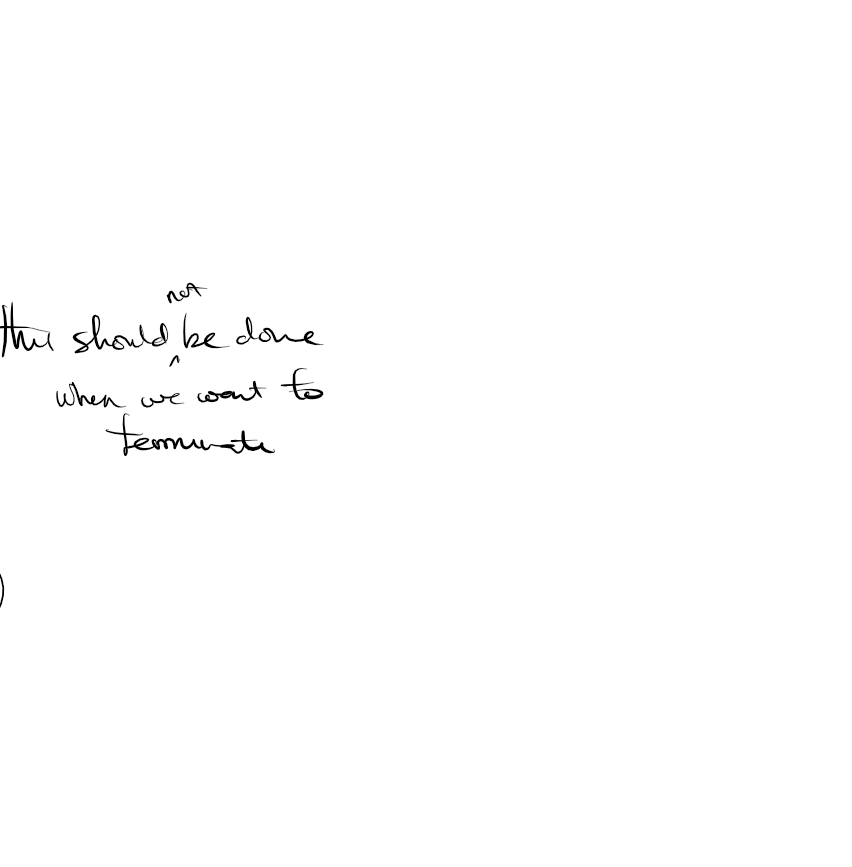 this should not be done
when we want to
terminate
)